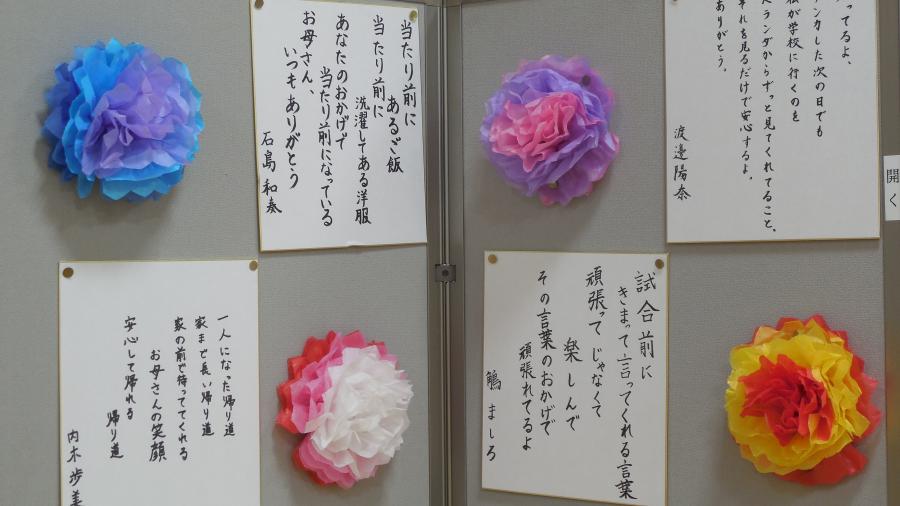 ってるよ、
ンカした次の日でも
私が学校に行くのを
ベランダからずっと見てくれてること、
それを見るだけで安心するよ。
ありがとう。
渡邉陽奈
開く
当たり前に
あるご飯
当たり前に
洗濯してある洋服
あなたのおかげで
当たり前になっている
お母さん、
いつもありがとう
石島和奏
試合前に
きまって言ってくれる言葉
頑張ってじゃなくて
楽しんで
その言葉のおかげで
頑張れてるよ
ましろ
一人になった帰り道
家まで長い帰り道
家の前で待っててくれる
お母さんの笑顔
安心して帰れる
帰り道
内木歩美